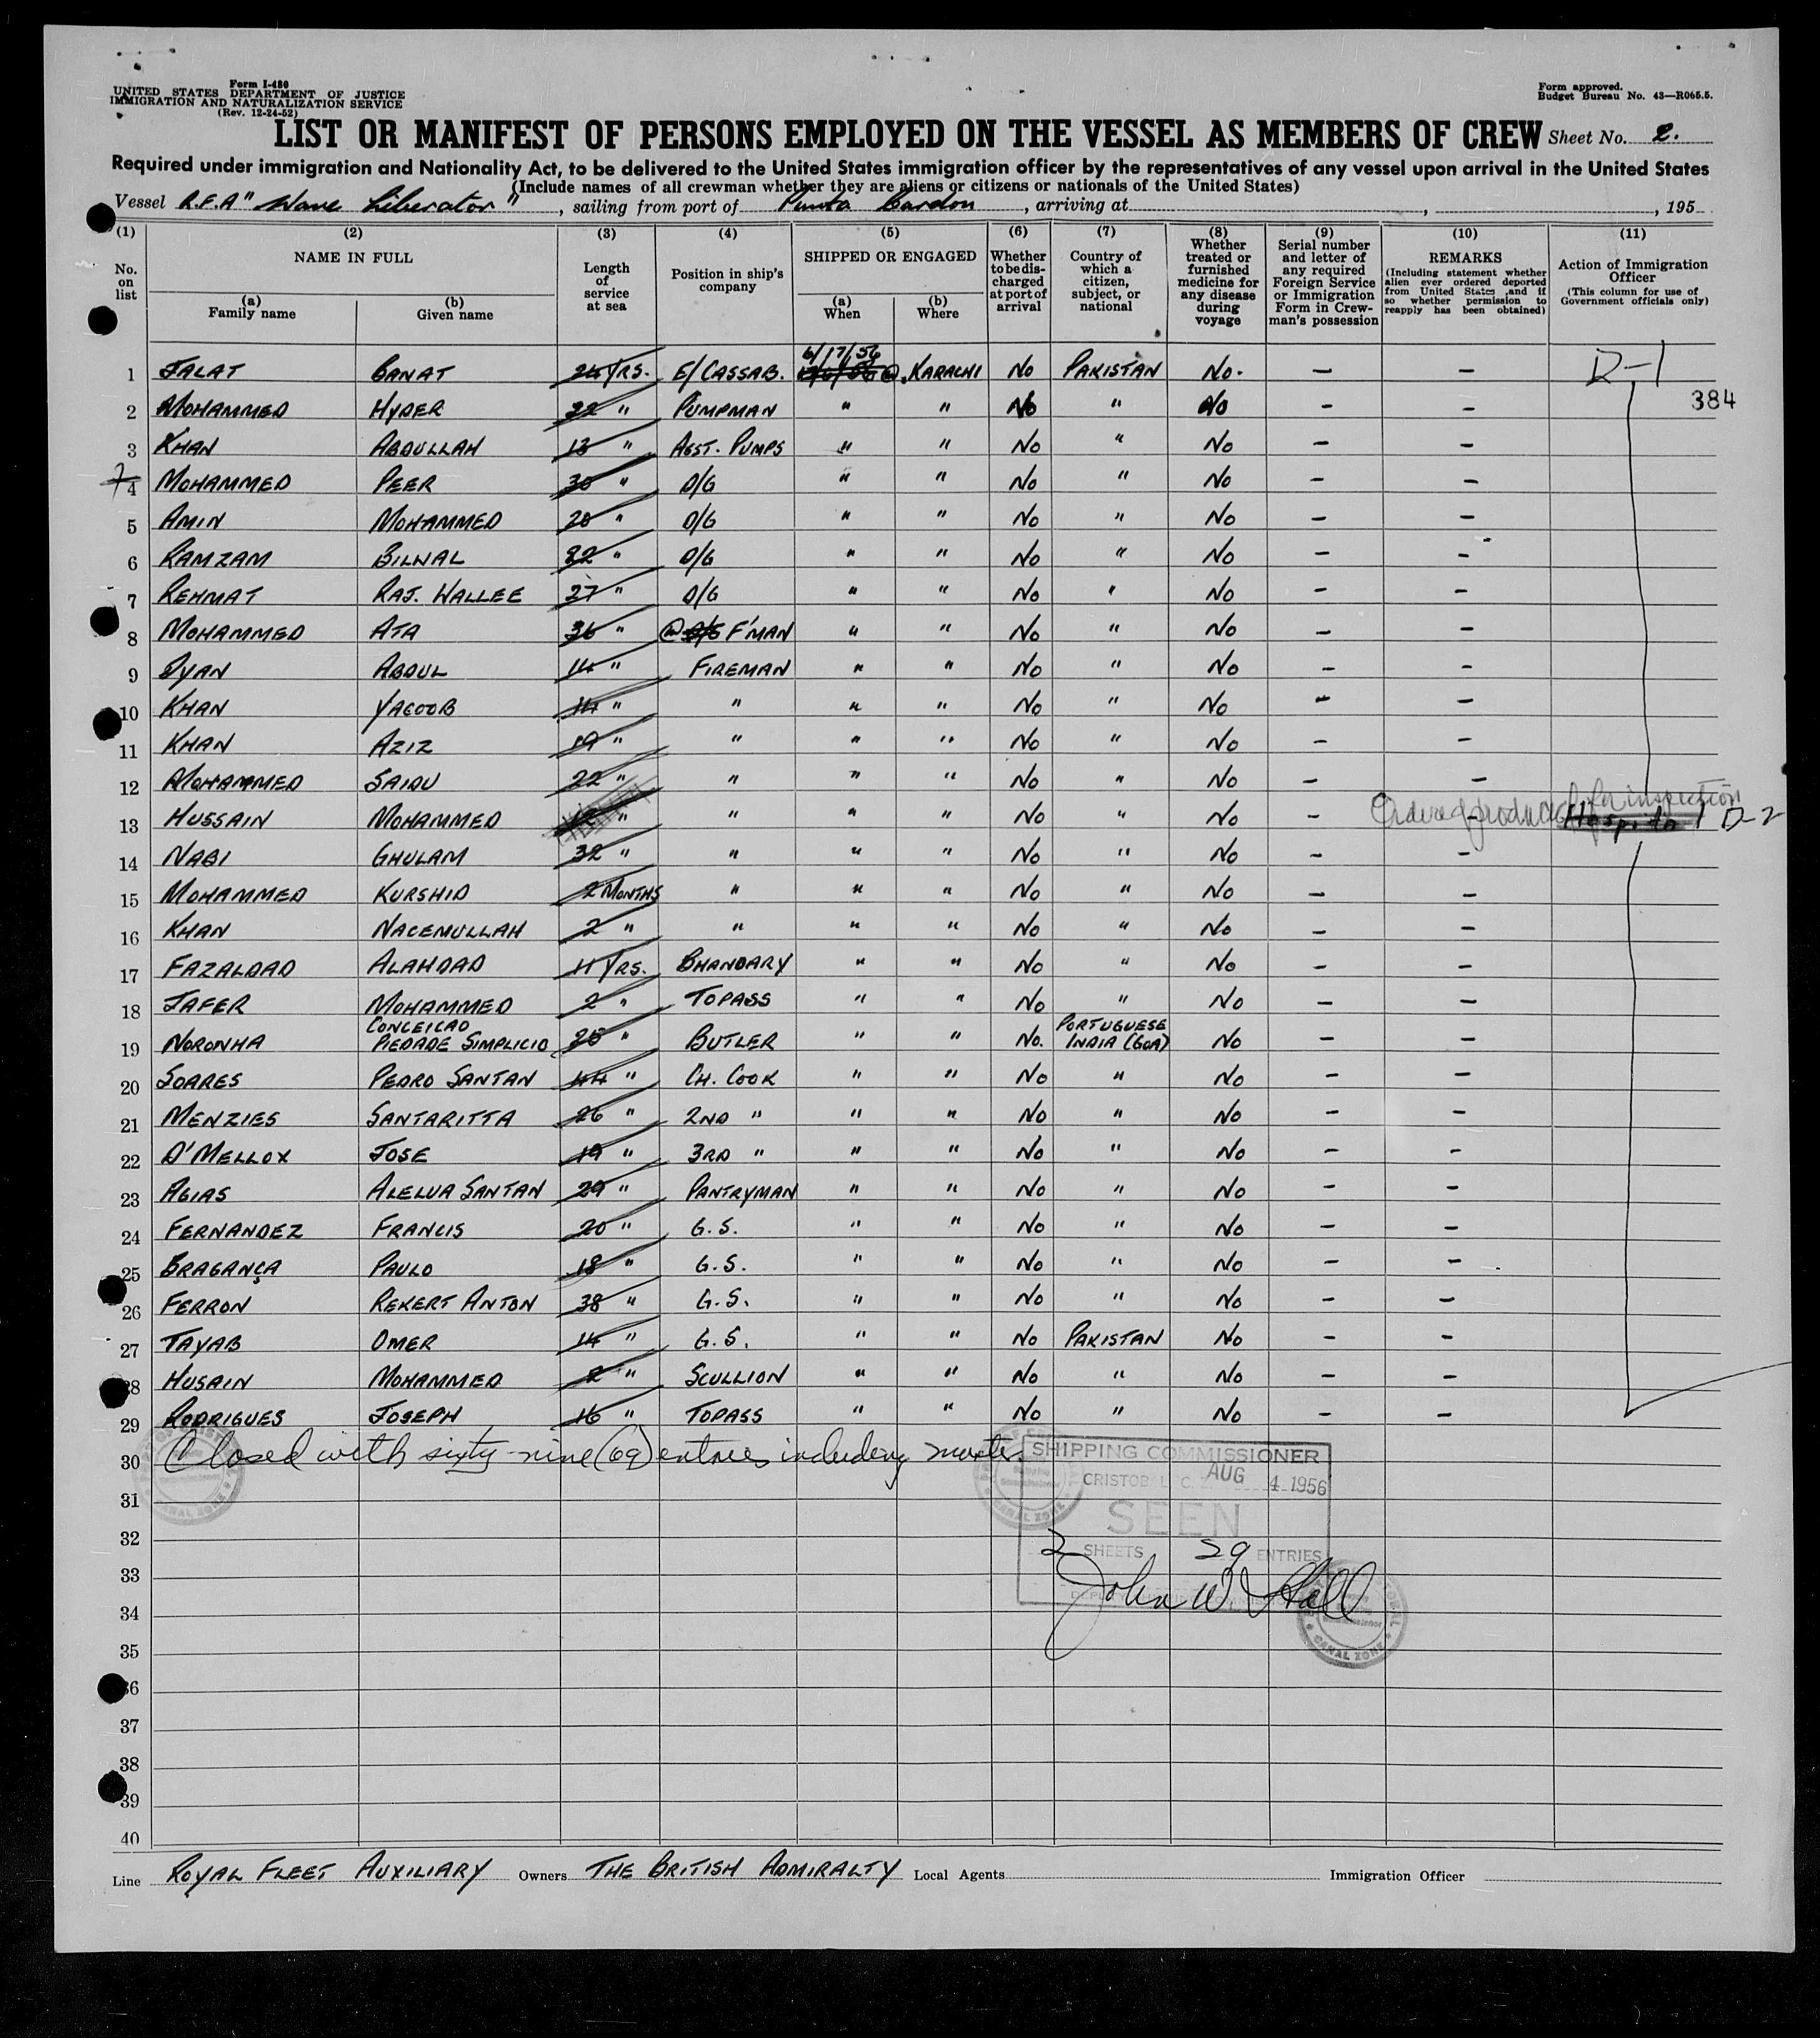 Form I-480
UNITED STATES DEPARTMENT OF JUSTICE
IMMIGRATION AND NATURALIZATION SERVICE
(Rev. 12-24-52)
Form approved.
Budget Bureau No. 43—R065.5.
LIST OR MANIFEST OF PERSONS EMPLOYED ON THE VESSEL AS MEMBERS OF CREW Sheet No. 2.
Required under immigration and Nationality Act, to be delivered to the United States immigration officer by the representatives of any vessel upon arrival in the United States
(Include names of all crewman whether they are aliens or citizens or nationals of the United States)
Vessel R.F.A "Wave Liberator", sailing from port of Punta Cardon, arriving at , , 195
(1) (2) (3) (4) (5) (6) (7) (8) (9) (10) (11)
No. on list
NAME IN FULL
(a) Family name
(b) Given name
Length of service at sea
Position in ship's company
SHIPPED OR ENGAGED
(a) When
(b) Where
Whether to be discharged at port of arrival
Country of which a citizen, subject, or national
Whether treated or furnished medicine for any disease during voyage
Serial number and letter of any required Foreign Service or Immigration Form in Crewman's possession
REMARKS
(Including statement whether alien ever ordered deported from United States ,and if so whether permission to reapply has been obtained)
Action of Immigration Officer
(This column for use of Government officials only)
6/17/56
1 JALAT GANAT 24 YRS. E/CASSAB. @ KARACHI No PAKISTAN No. — — D-1
2 MOHAMMED HYDER 22 " PUMPMAN " " No " No — — 384
3 KHAN ABDULLAH 13 " ASST. PUMPS " " No " No — —
4 MOHAMMED PEER 30 " D/G " " No " No — —
5 AMIN MOHAMMED 20 " D/G " " No " No — —
6 RAMZAM BILWAL 22 " D/G " " No " No — —
7 REHMAT RAJ. WALLEE 27 " D/G " " No " No — —
8 MOHAMMED ATA 36 " @ F'MAN " " No " No — —
9 DYAN ABDUL 14 " FIREMAN " " No " No — —
10 KHAN YAGOOB 14 " " " " No " No — —
11 KHAN AZIZ 19 " " " " No " No — —
12 MOHAMMED SAIDU 22 " " " " No " No — —
13 HUSSAIN MOHAMMED " " " " No " No — — Ordered produced for inspection Hospital D-2
14 NABI GHULAM 32 " " " " No " No — —
15 MOHAMMED KURSHID 2 MONTHS " " " No " No — —
16 KHAN NACEMULLAH 2 " " " " No " No — —
17 FAZALDAD ALAHDAD 11 YRS. BHANDARY " " No " No — —
18 JAFER MOHAMMED 2 " TOPASS " " No " No — —
19 NORONHA CONCEICAO PIEDADE SIMPLICIO 25 " BUTLER " " No. PORTUGUESE INDIA (GOA) No — —
20 SOARES PEDRO SANTAN 44 " CH. COOK " " No " No — —
21 MENZIES SANTARITTA 26 " 2ND " " " No " No — —
22 D'MELLOX JOSE 19 " 3RD " " " No " No — —
23 AGIAS ALELUA SANTAN 29 " PANTRYMAN " " No " No — —
24 FERNANDEZ FRANCIS 20 " G.S. " " No " No — —
25 BRAGANÇA PAULO 18 " G.S. " " No " No — —
26 FERRON REKERT ANTON 38 " G.S. " " No " No — —
27 TAYAB OMER 14 " G.S. " " No PAKISTAN No — —
28 HUSAIN MOHAMMED 2 " SCULLION " " No " No — —
29 RODRIGUES JOSEPH 16 " TOPASS " " No " No — —
30 Closed with sixty-nine (69) entries including master.
SHIPPING COMMISSIONER
CRISTOBAL C. Z. AUG 4 1956
SEEN
2 SHEETS 29 ENTRIES
John W. Hall
CANAL ZONE
31
32
33
34
35
36
37
38
39
40
Line ROYAL FLEET AUXILIARY Owners THE BRITISH ADMIRALTY Local Agents Immigration Officer